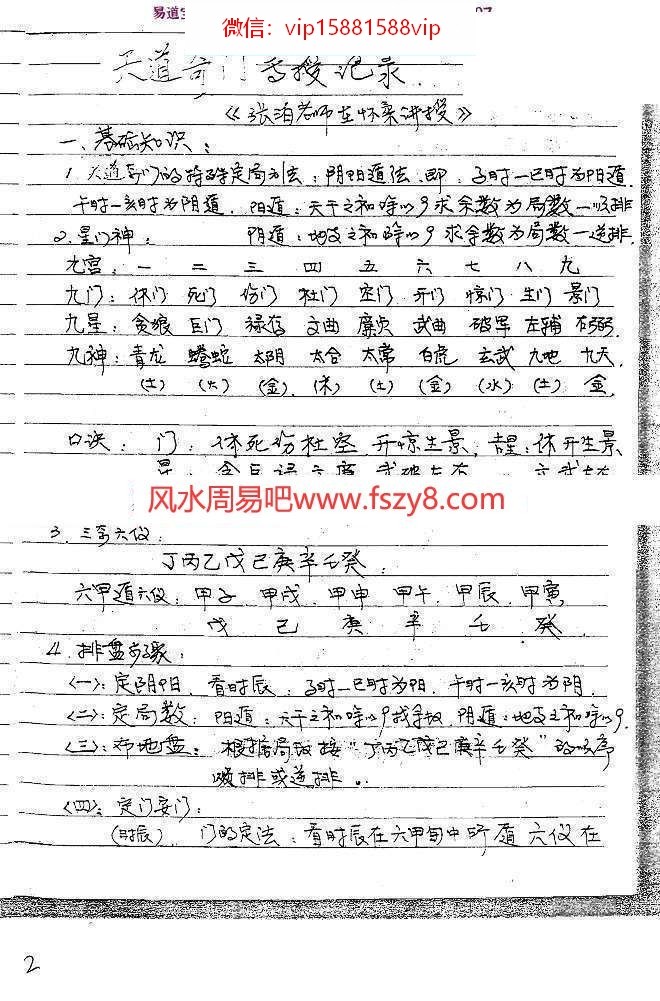 易道
微信：vip15881588vip
天道奇门面授记录
《张泊老师在怀柔讲授》
一、基础知识：
1.天道奇门的特殊定局方法：阴阳遁法，即：子时一巳时为阳遁
午时一亥时为阴遁．阳遁：天干之和除以9求余数为局数一顺排
2.星门神：阴遁：地支之和除以9求余数为局数一逆排．
九宫：一 二 三 四 五 六 七 八 九
九门：休门 死门 伤门 杜门 空门 开门 惊门 生门 景门
九星：贪狼 巨门 禄存 文曲 廉贞 武曲 破军 左辅 右弼
九神：青龙 螣蛇 太阴 六合 太常 白虎 玄武 九地 九天
(土) (火) (金) (木) (土) (金) (水) (土) 金
口诀：门：休死伤杜空，开惊生景；吉星：休开生景
风水周易吧www.fszy8.com
3．三奇六仪：
丁丙乙戊己庚辛壬癸．
六甲遁六仪：甲子 甲戌 甲申 甲午 甲辰 甲寅
戊 己 庚 辛 壬 癸
4．排盘步骤：
〈一〉：定阴阳．看时辰：子时一巳时为阳．午时一亥时为阴．
〈二〉：定局数：阳遁：天干之和除以9找余数．阴遁：地支之和除以9．
〈三〉：布地盘：根据局数按“丁丙乙戊己庚辛壬癸”的顺序
顺排或逆排．
〈四〉：定门安门：
(时辰) 门的定法：看时辰在六甲旬中所遁六仪在
2